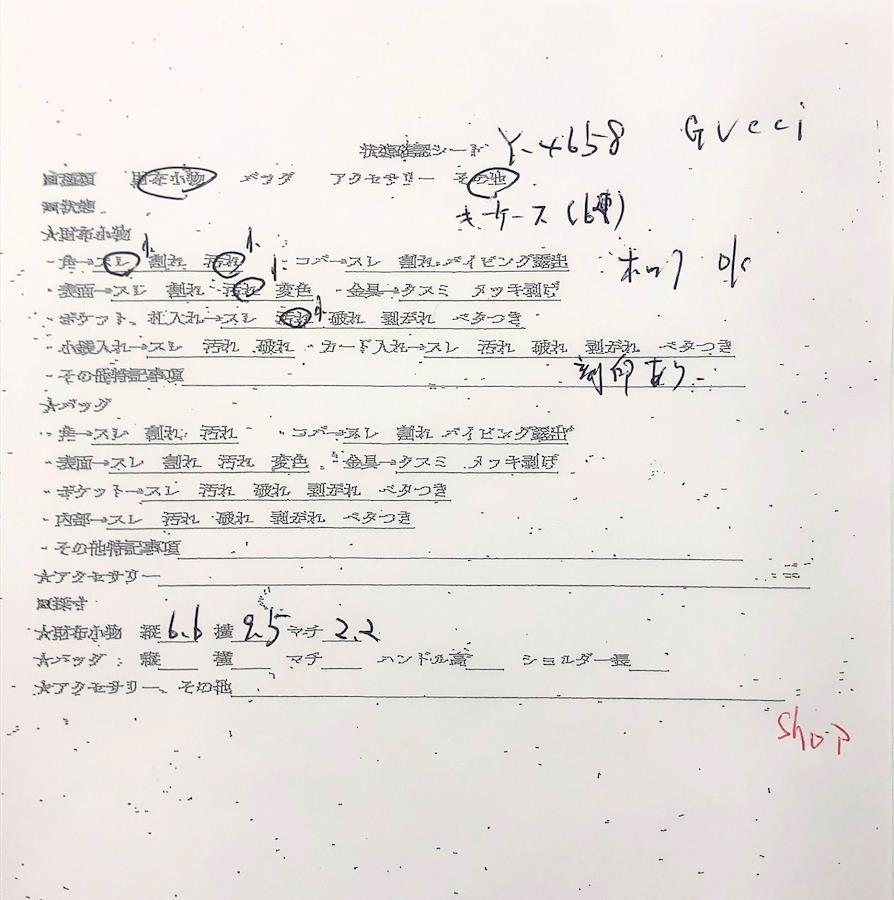 状態確認シード Y-4658 GUCCI
■種類 財布小物 バッグ アクセサリー その他
■状態 キーケース(6連)
★財布小物
・角→スレ 小 割れ 汚れ 小 ・コバ→スレ 割れ パイピング露出 ホック OK
・表面→スレ 割れ 汚れ 小 変色 ・金具→クスミ メッキ剥げ
・ポケット、札入れ→スレ 汚れ 小 破れ 剥がれ ベタつき
・小銭入れ→スレ 汚れ 破れ ・カード入れ→スレ 汚れ 破れ 剥がれ ベタつき
・その他特記事項 刻印あり
★バッグ
・角→スレ 割れ 汚れ ・コバ→スレ 割れ パイピング露出
・表面→スレ 割れ 汚れ 変色 ・金具→クスミ メッキ剥げ
・ポケット→スレ 汚れ 破れ 剥がれ ベタつき
・内部→スレ 汚れ 破れ 剥がれ ベタつき
・その他特記事項
★アクセサリー
■採寸
★財布小物 縦 6.6 横 9.5 マチ 2.2
★バッグ: 縦 横 マチ ハンドル高 ショルダー長
★アクセサリー、その他
Shop